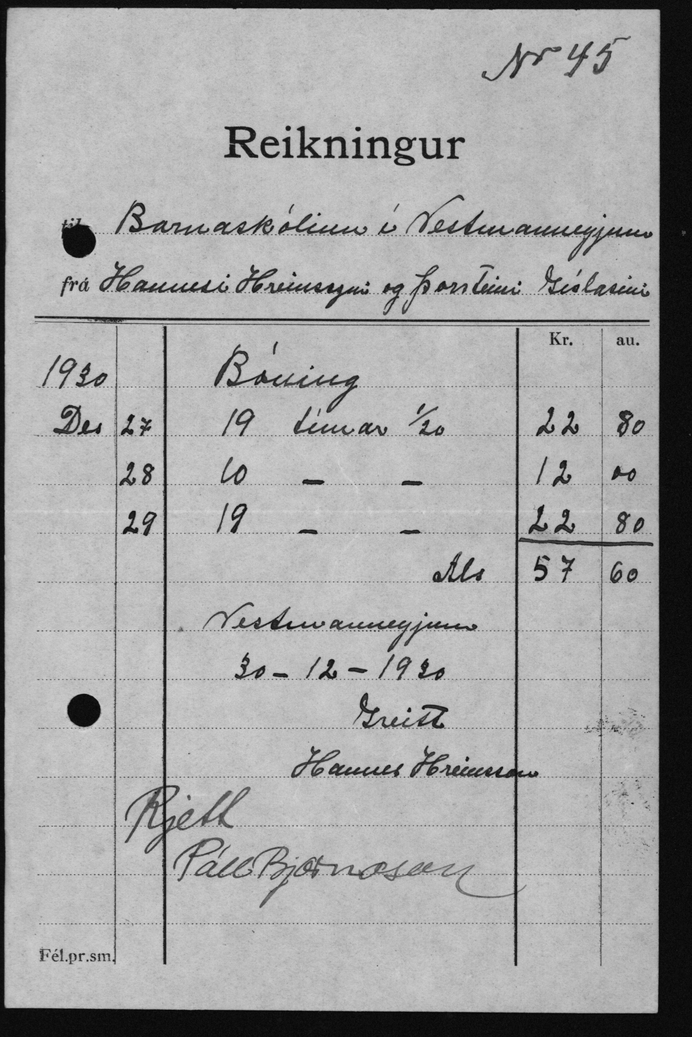 Nr 45
Reikningur
til Barnaskólinn í Vestmanneyjum
frá Hannesi Hreinssyni og Þorsteini Gíslasini
Kr. au.
1930 Bóning
Des 27 19 tímar 1/20 22 80
28 10 — — 12 00
29 19 — — 22 80
Als 57 60
Vestmanneyjum
30-12-1930
Greitt
Hannes Hreinsson
Rjett
Páll Bjarnason
Fél.pr.sm.